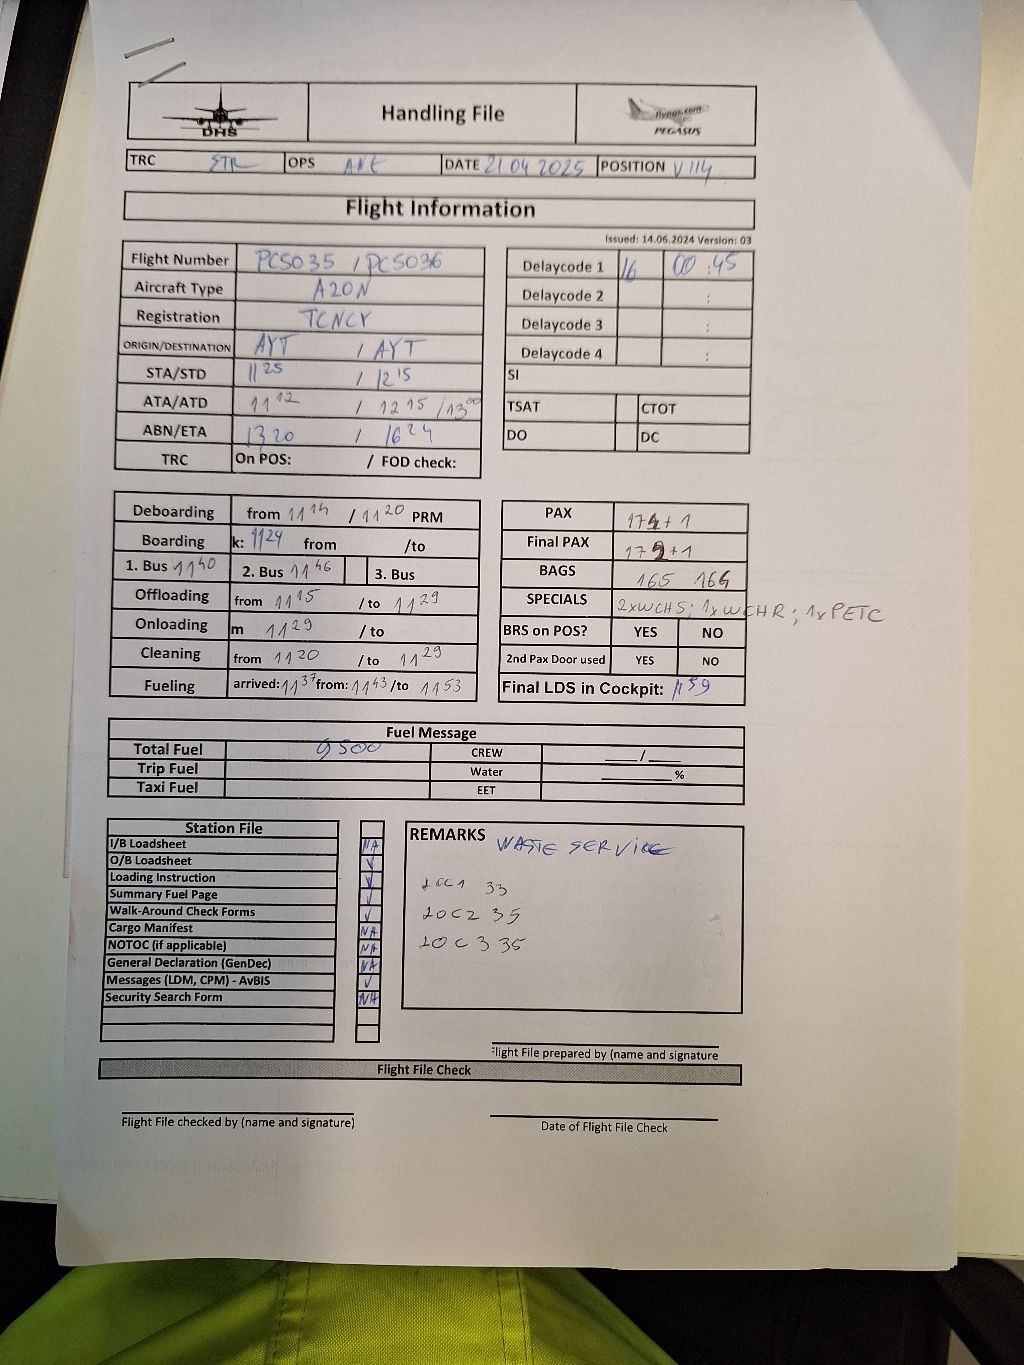 DHS
Handling File
flypgs.com
PEGASUS
TRC STR OPS ANE DATE 21 04 2025 POSITION V114
Flight Information
Issued: 14.06.2024 Version: 03
Flight Number PC5035 / PC5036
Aircraft Type A20N
Registration TCNCY
ORIGIN/DESTINATION AYT / AYT
STA/STD 11 25 / 12 15
ATA/ATD 11 12 / 12 15 / 13 00
ABN/ETA 13 20 / 16 24
TRC On POS: / FOD check:
Delaycode 1 16 00 :45
Delaycode 2 :
Delaycode 3 :
Delaycode 4 :
SI
TSAT CTOT
DO DC
Deboarding from 11 14 / 11 20 PRM
Boarding k: 1124 from /to
1. Bus 11 40 2. Bus 11 46 3. Bus
Offloading from 11 15 / to 11 29
Onloading m 11 29 / to
Cleaning from 11 20 / to 11 29
Fueling arrived: 11 37 from: 11 43 /to 11 53
PAX 174+1
Final PAX 172+1
BAGS 165 164
SPECIALS 2xWCHS; 1xWCHR; 1xPETC
BRS on POS? YES NO
2nd Pax Door used YES NO
Final LDS in Cockpit: 1159
Fuel Message
Total Fuel 9500 CREW ____/____
Trip Fuel Water ________%
Taxi Fuel EET
Station File
I/B Loadsheet NA
O/B Loadsheet ✓
Loading Instruction ✓
Summary Fuel Page ✓
Walk-Around Check Forms ✓
Cargo Manifest NA
NOTOC (if applicable) NA
General Declaration (GenDec) NA
Messages (LDM, CPM) - AvBIS ✓
Security Search Form NA
REMARKS WASTE SERVICE
LOC1 33
LOC2 35
LOC3 35
Flight File prepared by (name and signature
Flight File Check
Flight File checked by (name and signature)
Date of Flight File Check